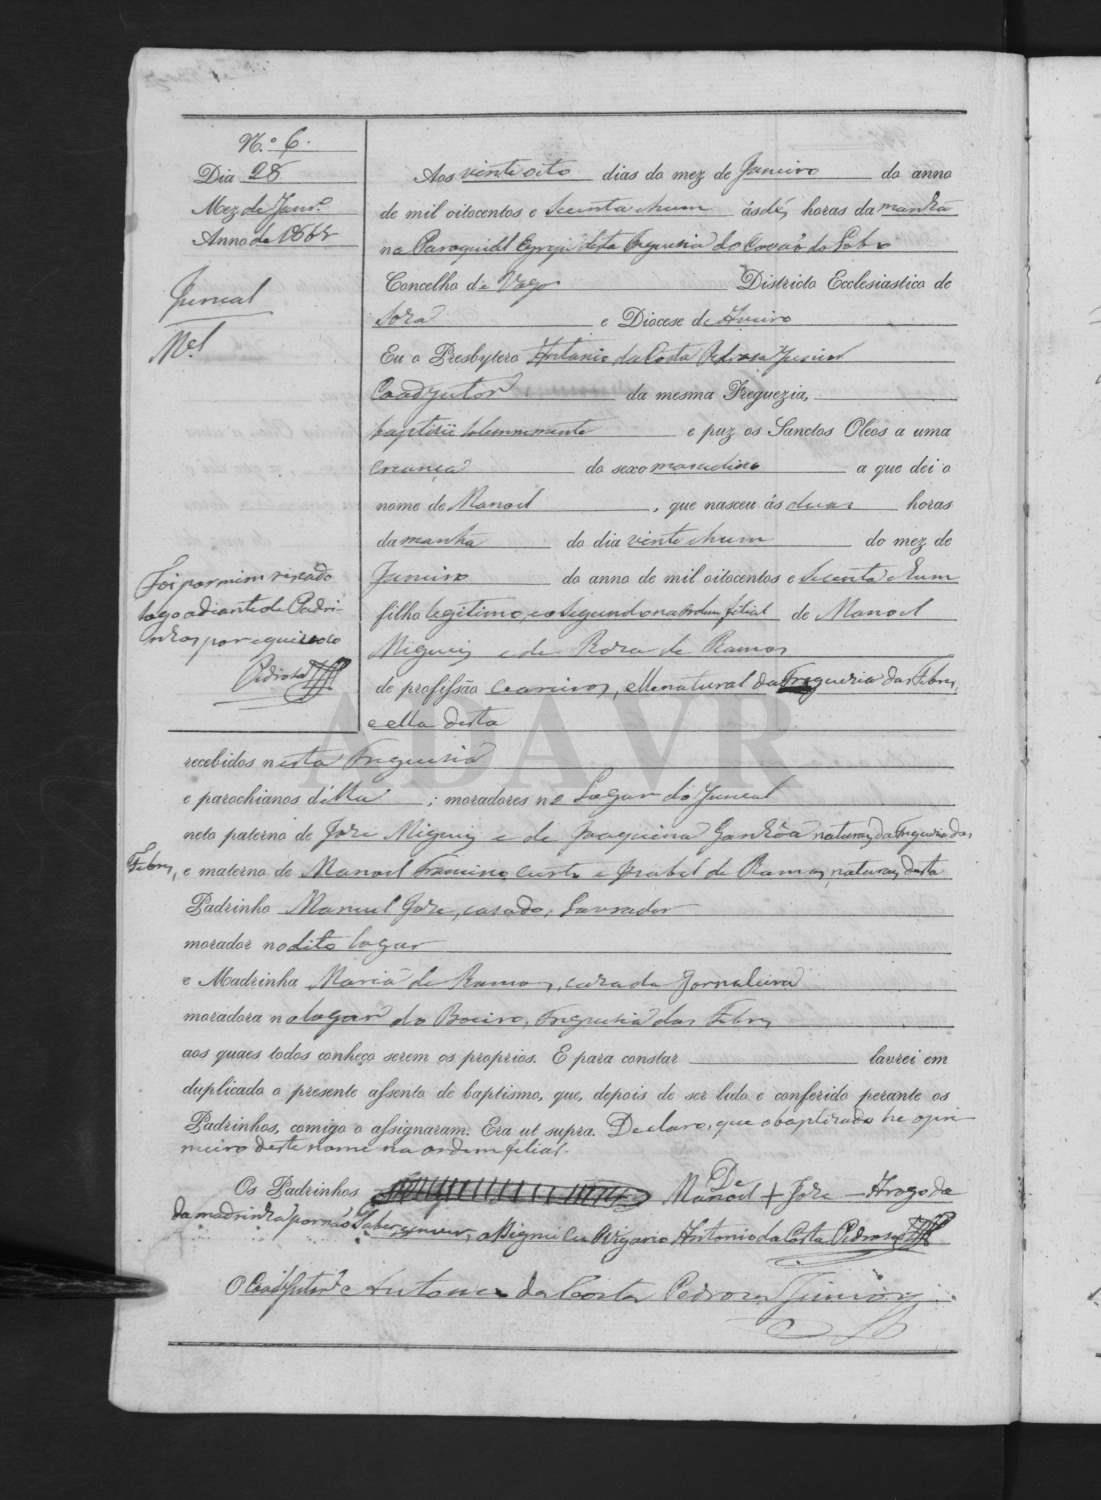 N.º 6.
Dia 28
Mez de Janr.º
Anno de 1861
Juncal
M.el
Foi por mim riscado
logo adiante de Padri-
nhos por equivoco
Pedrosa
Aos vinte oito dias do mez de Janeiro do anno
de mil oitocentos e secenta e hum ás dés horas da manhã
na Parroquial Egreja desta Freguesia do Covaõ do Lobo
Concelho de Vagos Districto Ecclesiastico de
Soza e Diocese de Aveiro
Eu o Presbytero Antonio da Costa Pedrosa Junior
Coadjutor da mesma Freguezia,
baptisei solemnemente e puz os Sanctos Oleos a uma
creança do sexo masculino a que dei o
nome de Manoel, que nasceu ás duas horas
da manhã do dia vinte e hum do mez de
Janeiro do anno de mil oitocentos e secenta e hum
filho legitimo, e o segundo na ordem filial de Manoel
Migueis e de Roza de Ramos
de profissão, elle natural da Freguezia das Febres,
e ella desta
recebidos nesta Freguesia
e parochianos d'ella; moradores no Logar do Juncal
neto paterno de Joze Migueis e de Joaquina naturaes da Freguezia das
Febres, e materno de Manoel Francisco e Izabel de Ramos, naturaes desta
Padrinho Manuel Joze, casado, Lavrador
morador no dito logar
e Madrinha Maria de Ramos, cazada Jornaleira
moradora no logar do Boeiro, Freguesia das Febres
aos quaes todos conheço serem os proprios. E para constar lavrei em
duplicado o presente assento de baptismo, que, depois de ser lido e conferido perante os
Padrinhos, comigo o assignaram. Era ut supra. Declaro, que o baptizado he o pri-
meiro deste nome na ordem filial.
Os Padrinhos De Manoel + Joze — A rogo da
da madrinha por naõ saber escrever, assignei Eu Vigario Antonio da Costa Pedrosa
O Coadjutor Antonio da Costa Pedrosa Junior
ADAVR